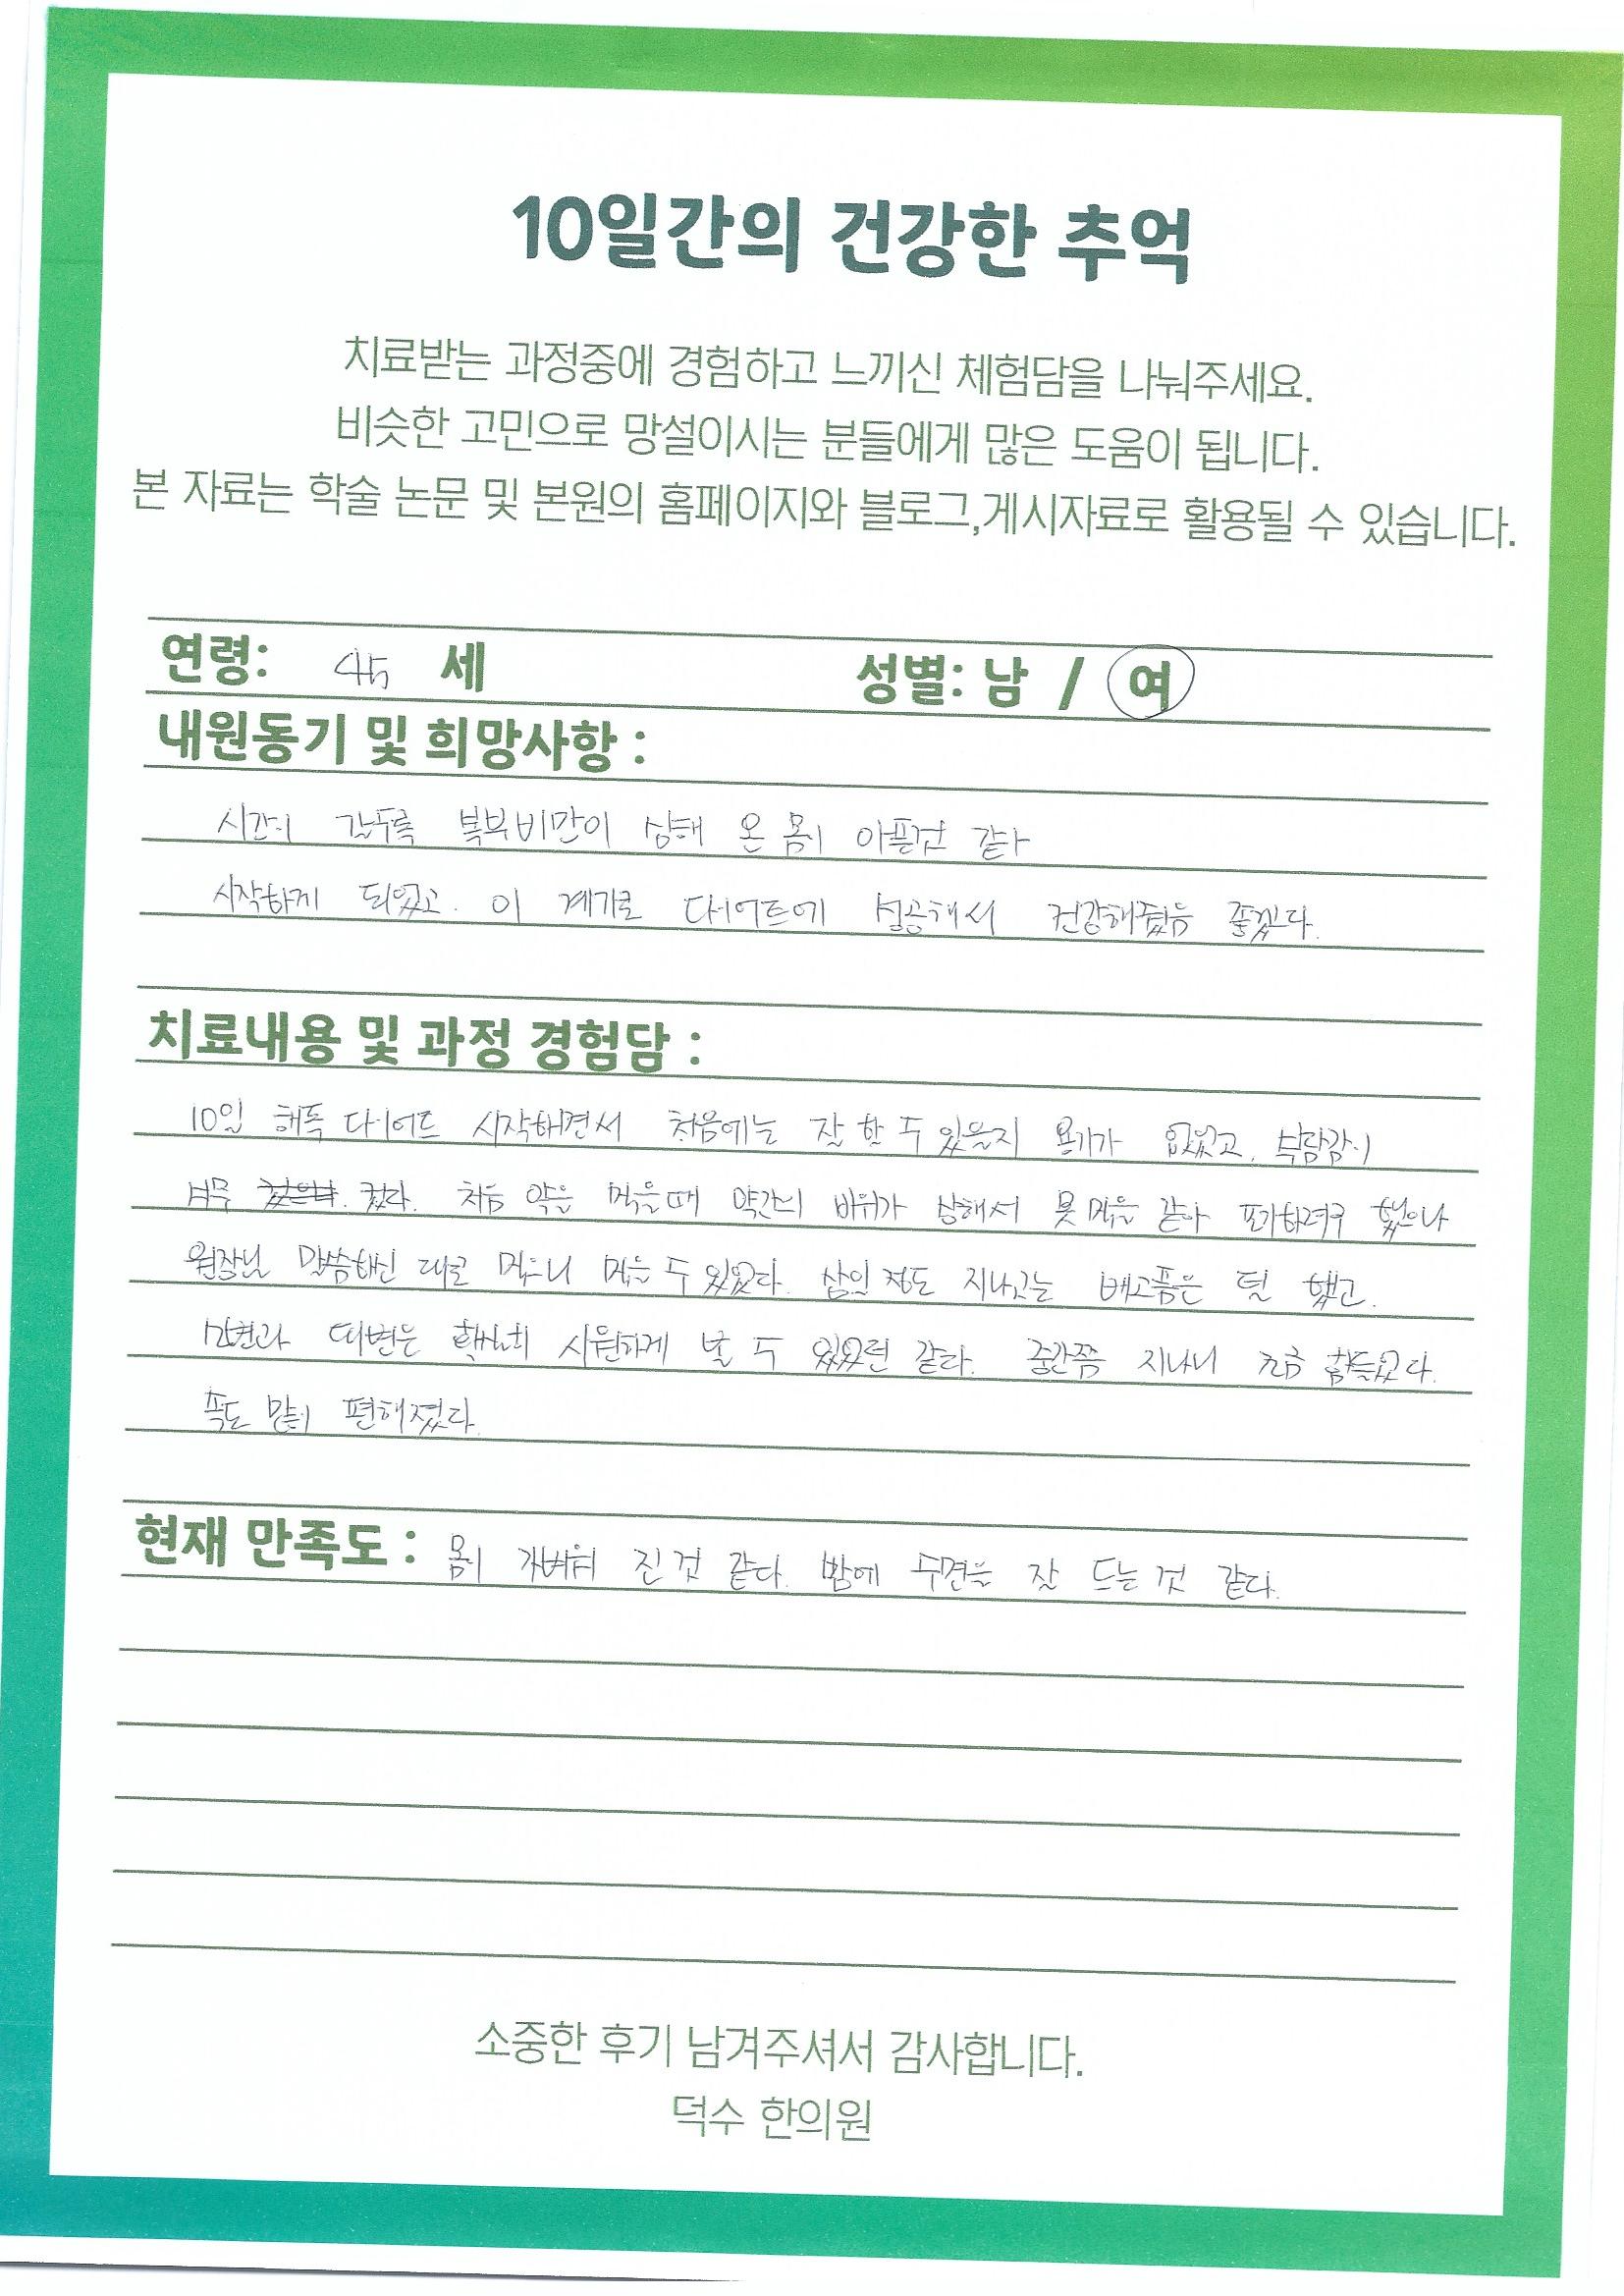 10일간의 건강한 추억
치료받는 과정중에 경험하고 느끼신 체험담을 나눠주세요.
비슷한 고민으로 망설이시는 분들에게 많은 도움이 됩니다.
본 자료는 학술 논문 및 본원의 홈페이지와 블로그,게시자료로 활용될 수 있습니다.
연령: 45 세 성별: 남 / 여
내원동기 및 희망사항 :
시간이 갈수록 복부비만이 심해 온 몸이 아픈것 같아
시작하게 되었고. 이 계기로 다이어트에 성공해서 건강해졌음 좋겠다.
치료내용 및 과정 경험담 :
10일 해독 다이어트 시작하면서 처음에는 잘 할 수 있을지 용기가 없었고, 부담감이
너무 컸다. 처음 약을 먹을때 약간의 비위가 상해서 못 먹을 같아 포기하려구 했으나
원장님 말씀하신 대로 먹으니 먹을 수 있었다. 삼일 정도 지나서는 배고픔은 덜 했고.
대변은 확실히 시원하게 볼 수 있었던 같다. 중간쯤 지나니 조금 힘들었다.
속도 많이 편해졌다.
현재 만족도 : 몸이 가벼워 진 것 같다. 밤에 수면을 잘 드는 것 같다.
소중한 후기 남겨주셔서 감사합니다.
덕수 한의원